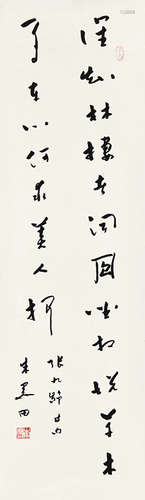 誰知林棲者聞風坐相悦草木
有本心何求美人折
張九齡
朱關田